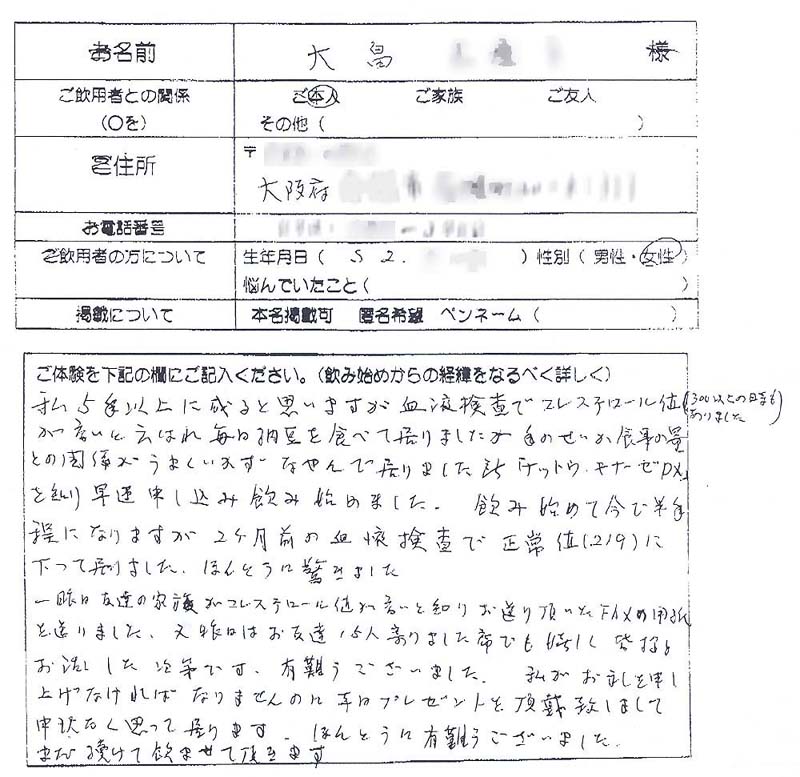 お名前 大畠 様
ご飲用者との関係 ご本人 ご家族 ご友人
(〇を) その他 ( )
ご住所 〒
大阪府 市
お電話番号
ご飲用者の方について 生年月日 ( S 2. ) 性別 ( 男性・女性 )
悩んでいたこと ( )
掲載について 本名掲載可 匿名希望 ペンネーム ( )
ご体験を下記の欄にご記入ください。(飲み始めからの経緯をなるべく詳しく)
私5年以上に成ると思いますが血液検査でコレステロール値(300以上の日も
ありました)
が高いと云はれ毎日納豆を食べて居りましたが年のせいか食事の量
との関係がうまくいかずなやんで居りました時「ナットウ キナーゼDX」
を知り早速申し込み飲み始めました。 飲み始めて今で半年
程になりますが2ヶ月前の血液検査で正常値(219)に
下って居りました、ほんとうに驚きました
一昨日友達の家族がコレステロール値が高いと知りお送り頂いたFAXの用紙
を送りました、又昨日はお友達15人寄りました席でも嬉しく皆様に
お話した次第です、有難うございました。 私がお礼を申し
上げなければなりませんのに毎日プレゼントを頂戴致しまして
申訳なく思って居ります、ほんとうに有難うございました、
まだ続けて飲ませて頂きます